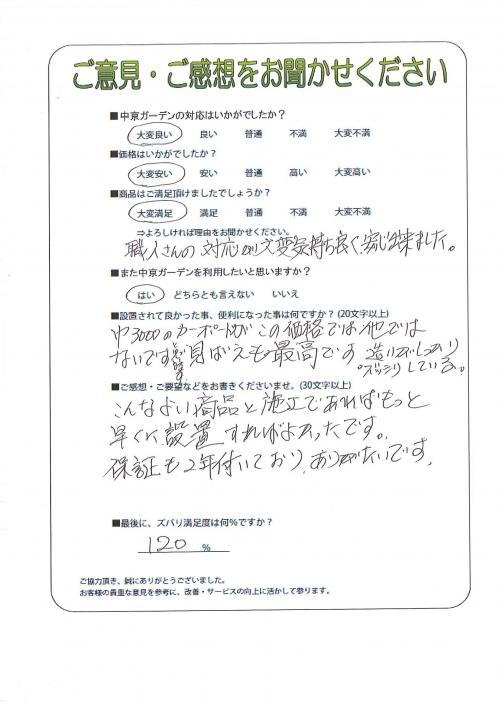 ご意見・ご感想をお聞かせください
■中京ガーデンの対応はいかがでしたか？
大変良い 良い 普通 不満 大変不満
■価格はいかがでしたか？
大変安い 安い 普通 高い 大変高い
■商品はご満足頂けましたでしょうか？
大変満足 満足 普通 不満 大変不満
⇒よろしければ理由をお聞かせください。
職人さんの対応が大変気持ち良く、安心出来ました。
■また中京ガーデンを利用したいと思いますか？
はい どちらとも言えない いいえ
■設置されて良かった事、便利になった事は何ですか？（20文字以上）
巾3000のカーポートがこの価格では他では
ないですと思います 見ばえも最高です 造りがしっかり
ガッシリしている。
■ご感想・ご要望などをお書きくださいませ。（30文字以上）
こんなよい商品と施工であればもっと
早くに設置すればよかったです。
保証も2年付いており、ありがたいです。
■最後に、ズバリ満足度は何％ですか？
120 ％
ご協力頂き、誠にありがとうございました。
お客様の貴重な意見を参考に、改善・サービスの向上に活かして参ります。